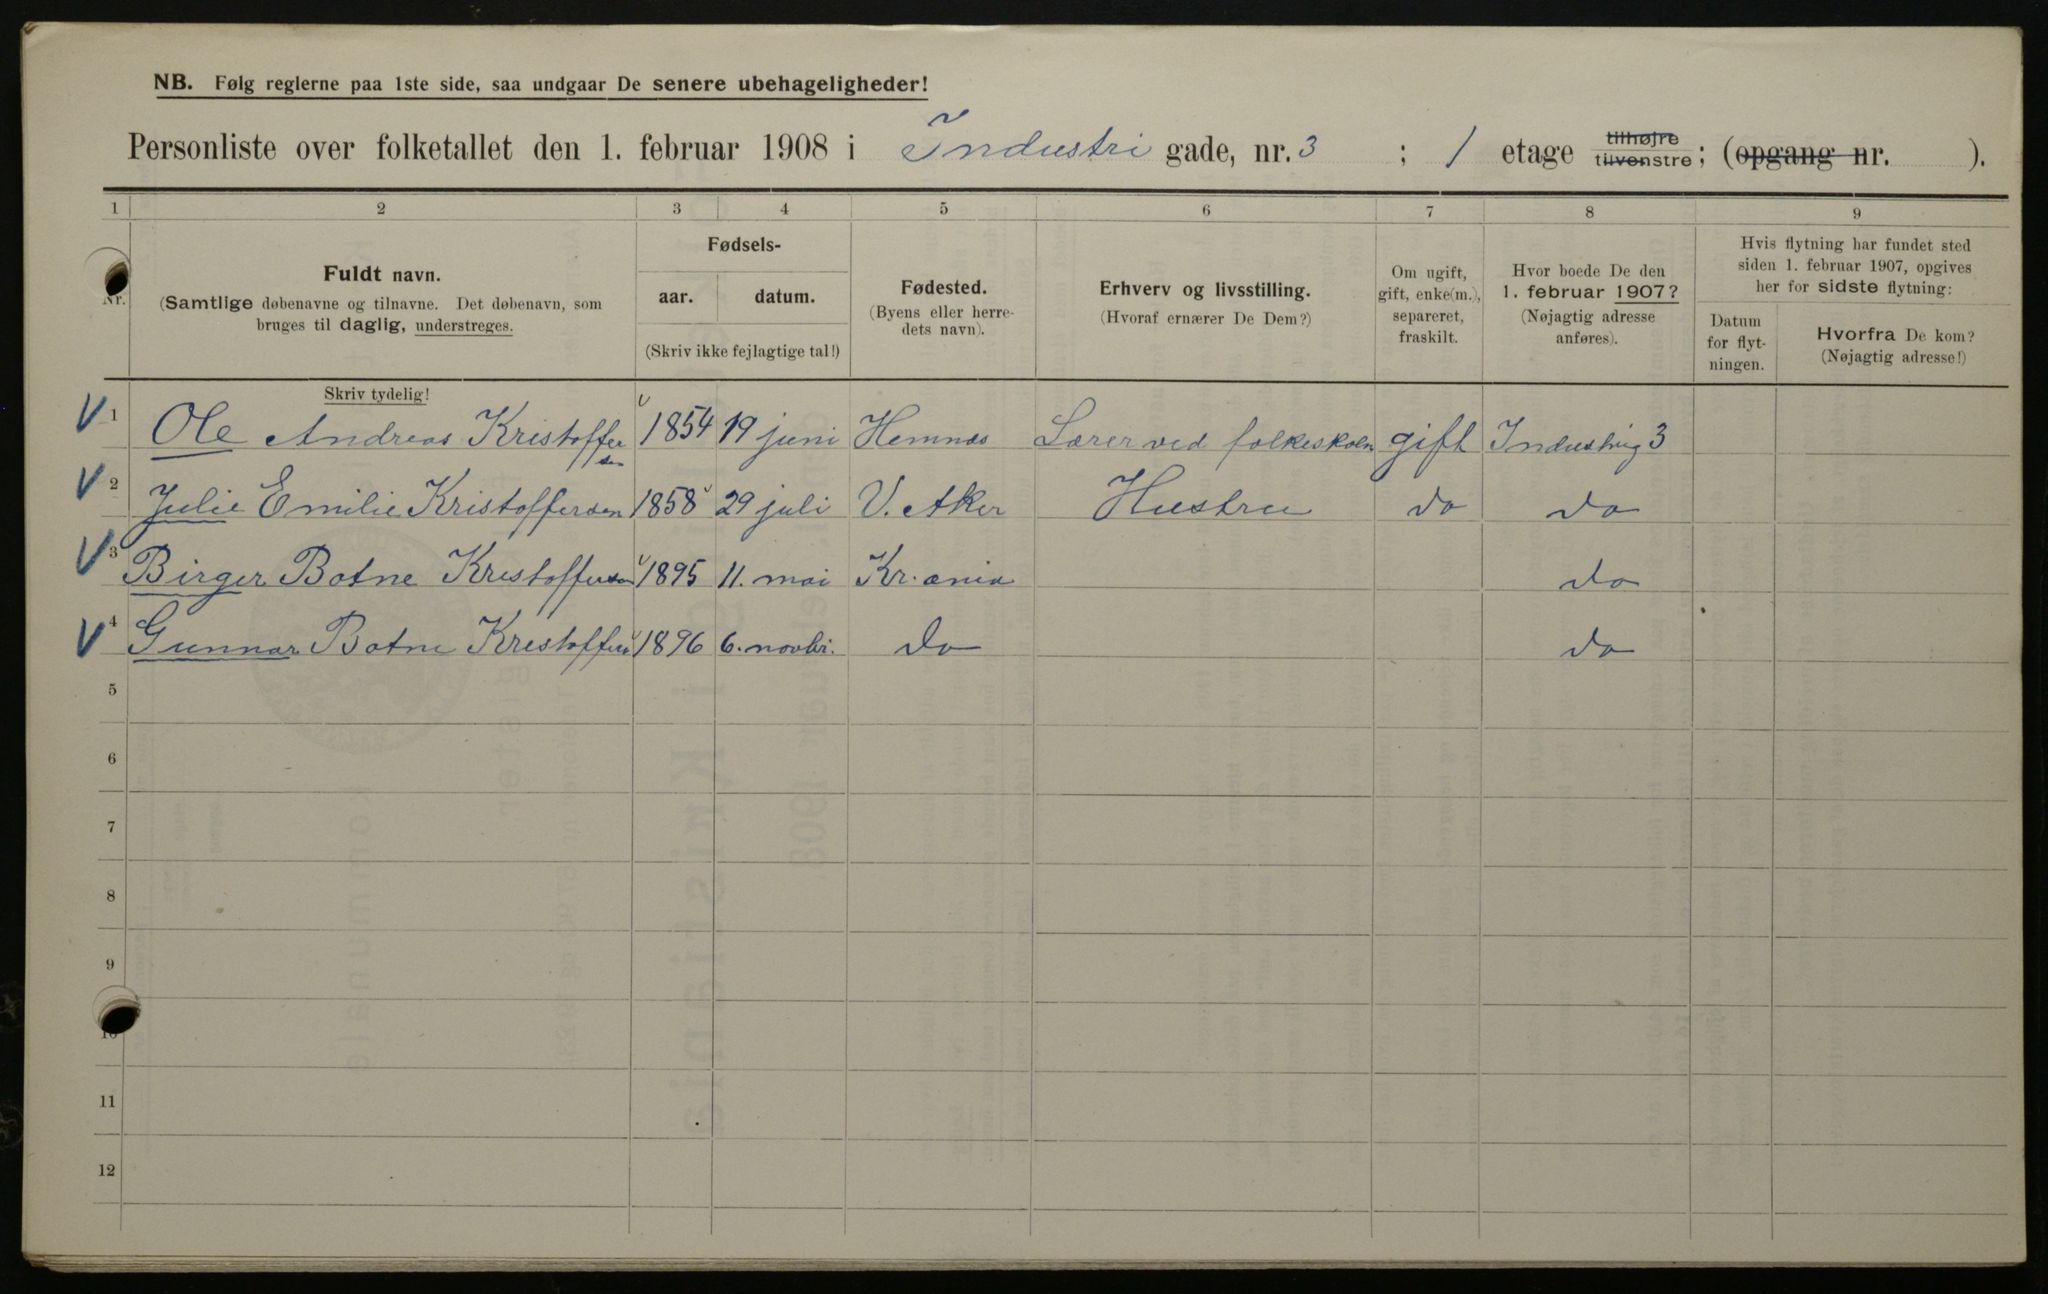 NB. Følg reglerne paa 1ste side, saa undgaar De senere ubehageligheder!
Personliste over folketallet den 1. februar 1908 i Industri gade, nr. 3 ; 1 etage tilhøjre tilvenstre; (opgang nr. ).
1 2 3 4 5 6 7 8 9
Nr.
Fuldt navn.
(Samtlige døbenavne og tilnavne. Det døbenavn, som
bruges til daglig, understreges.
Skriv tydelig!
Fødsels-
aar. datum.
(Skriv ikke fejlagtige tal!)
Fødested.
(Byens eller herre-
dets navn).
Erhverv og livsstilling.
(Hvoraf ernærer De Dem?)
Om ugift,
gift, enke(m.),
separeret,
fraskilt.
Hvor boede De den
1. februar 1907?
(Nøjagtig adresse
anføres).
Hvis flytning har fundet sted
siden 1. februar 1907, opgives
her for sidste flytning:
Datum
for flyt-
ningen.
Hvorfra De kom?
(Nøjagtig adresse!)
V 1 Ole Andreas Kristoffer sen 1854 19 juni Hemnæs Lærer ved folkeskolen gift Industrig 3
V 2 Julie Emilie Kristoffersen 1858 29 juli V. Aker Hustru do do
V 3 Birger Botne Kristoffersen 1895 11. mai Kr.ania do
V 4 Gunnar Botne Kristoffers 1896 6. novbr. do do
5
6
7
8
9
10
11
12